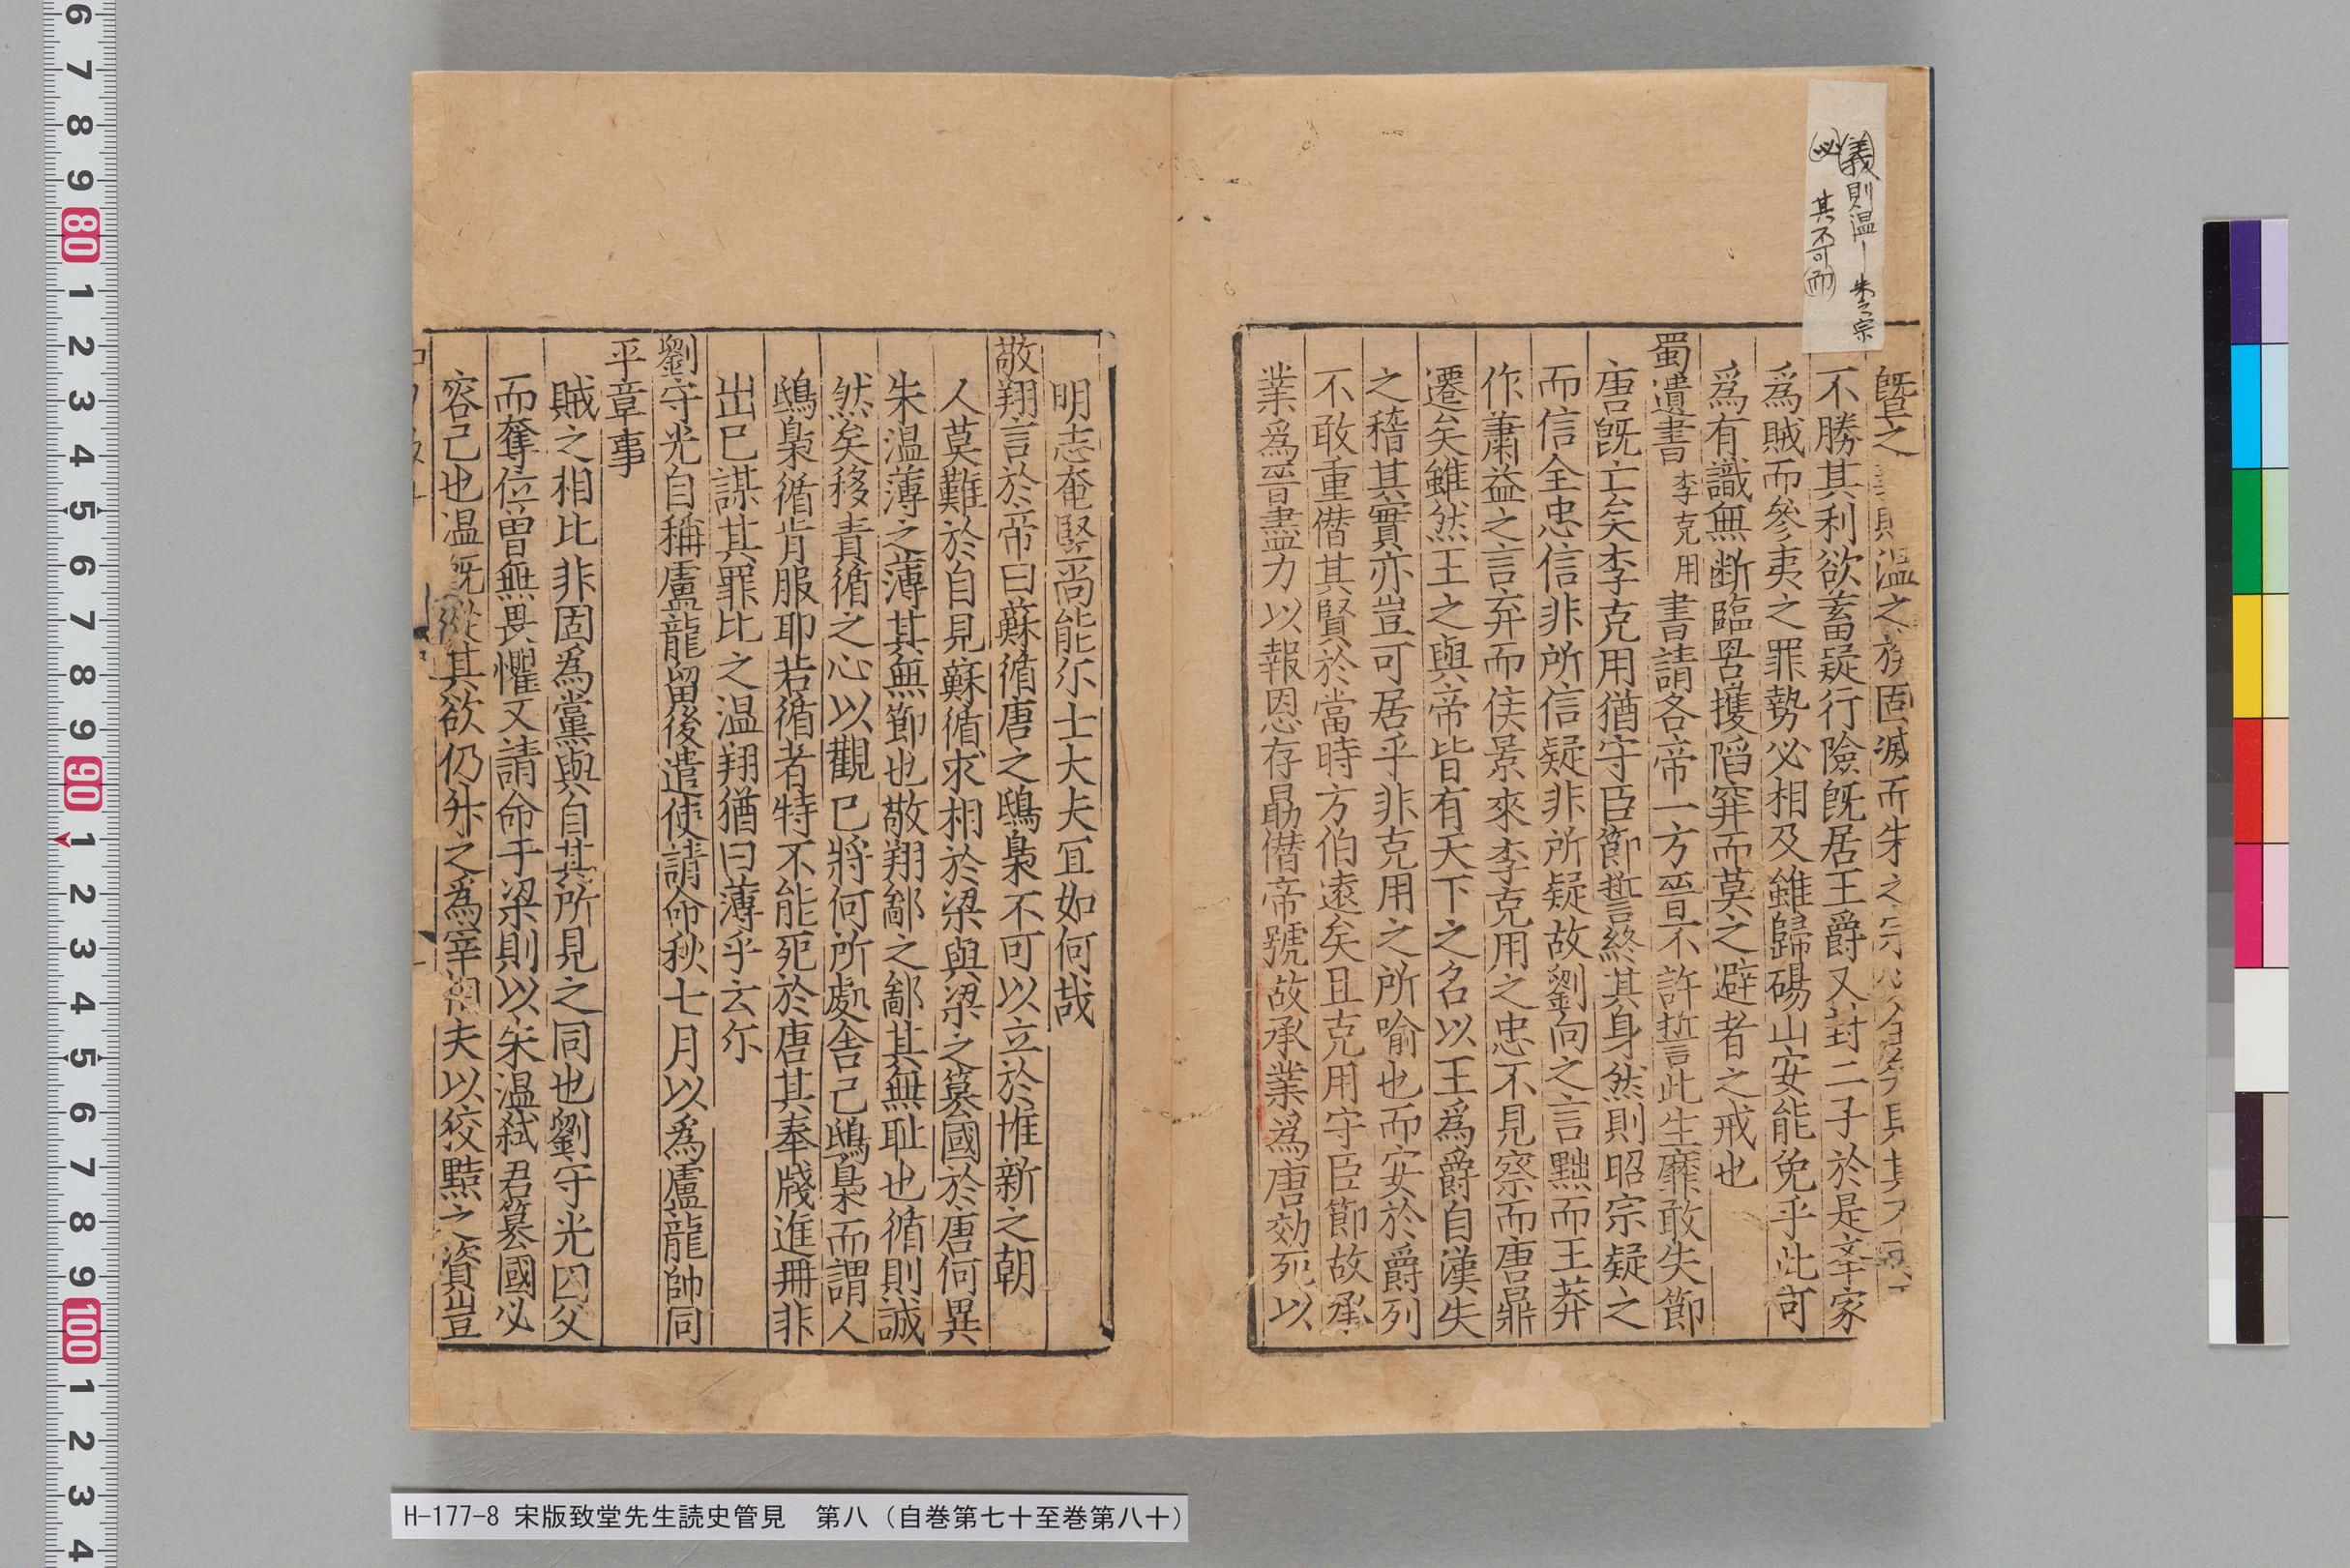 義則温丨朱之宗
必其不可而
暨之則温之族固滅而朱之宗
不勝其利欲蓄疑行險旣居王爵又封二子於是產家
爲賊而參夷之罪勢必相及雖歸碭山安能免乎此可
爲有識無斷臨罟擭陷穽而莫之避者之戒也
蜀遺書李克用書請各帝一方晉不許誓此生靡敢失節
唐旣亡矣李克用猶守臣節誓終其身然則昭宗疑之
而信全忠信非所信疑非所疑故劉向之言黜而王莽
作蕭益之言弃而侯景來李克用之忠不見察而唐鼎
遷矣雖然王之與帝皆有天下之名以王爲爵自漢失
之稽其實亦豈可居乎非克用之所喻也而安於爵列
不敢重僭其賢於當時方伯遠矣且克用守臣節故承
業爲晉盡力以報恩存勗僭帝號故承業爲唐効死以
明志奄竪尚能尓士大夫宜如何哉
敬翔言於帝曰蘇循唐之鴟梟不可以立於惟新之朝
人莫難於自見蘇循求相於梁與梁之簒國於唐何異
朱温薄之薄其無節也敬翔鄙之鄙其無耻也循則誠
然矣移責循之心以觀已將何所處舍己鴟梟而謂人
鴟梟循肯服耶若循者特不能死於唐其奉牋進冊非
出已謀其罪比之温翔猶曰薄乎云尓
劉守光自稱盧龍留後遣使請命秋七月以爲盧龍帥同
平章事
賊之相比非固爲黨與自其所見之同也劉守光囚父
而奪位曽無畏懼又請命于梁則以朱温弑君簒國必
容己也温旣從其欲仍升之爲宰相夫以狡黠之資豈
H-177-8 宋版致堂先生読史管見　第八（自巻第七十至巻第八十）
6
7
8
9
80
1
2
3
4
5
6
7
8
9
90
1
2
3
4
5
6
7
8
9
100
1
2
3
4